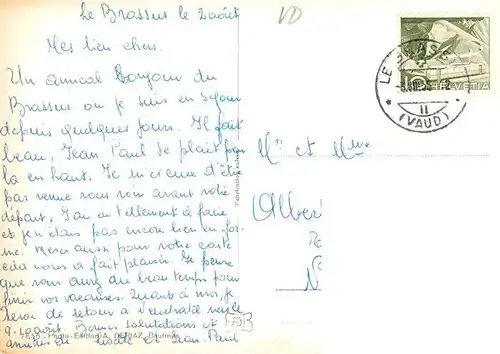 Le Brassus le 2 août
VD
Mes bien chers.
Un amical bonjour du
Brassus où je suis en séjour
depuis quelques jours. Il fait
beau, Jean Paul se plait par
la en haut. Je m'excuse d'être
pas venue vous voir avant votre
départ. J'ai eu tellement à faire
et je n'étais pas encore bien en for-
me. Merci aussi pour votre carte
cela nous a fait plaisir. Je pense
que vous aurez du beau temps pour
finir vos vacances. Quant à moi, je
serai de retour à Neuchâtel vers le
9-10 août. Bonnes salutations et
amitiés de Lisette et Jean Paul
LE BRASSUS
(VAUD)
HELVETIA
Mr et Mme
Albert
7635 Photo-Edition A. DERIAZ, Baulmes